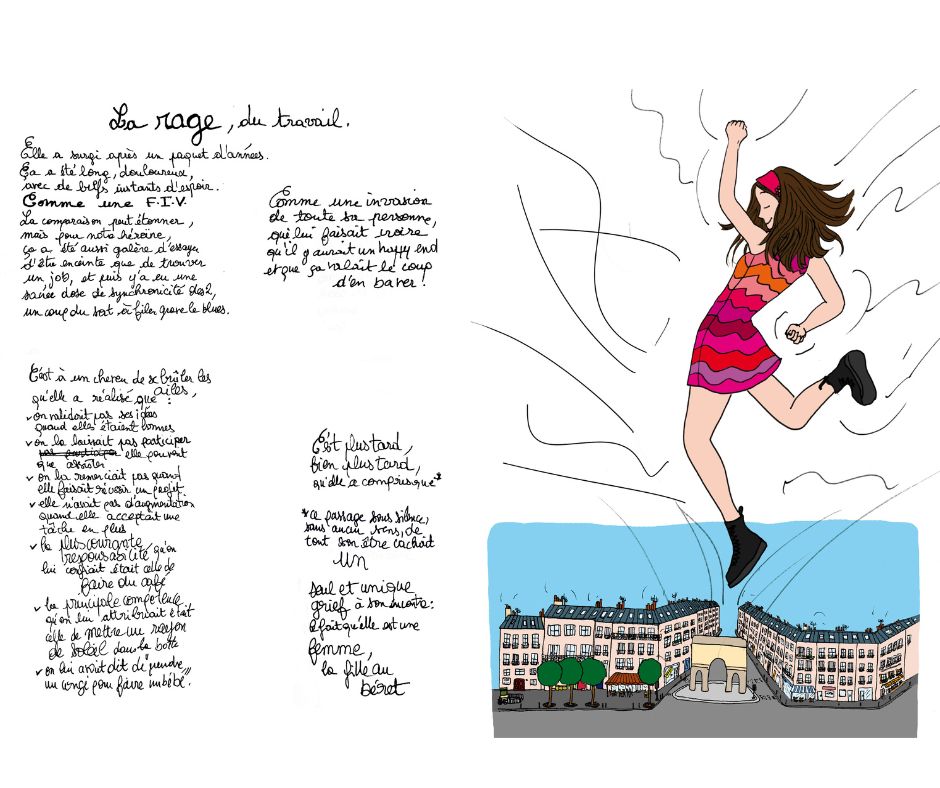 La rage, du travail.
Elle a surgi après un paquet d'années.
Ça a été long, douloureux,
avec de brefs instants d'espoir.
Comme une F.I.V.
La comparaison peut étonner,
mais pour notre héroïne,
ça a été aussi galère d'essayer
d'être enceinte que de trouver
un job, et puis y'a eu une
sacrée dose de synchronicité des 2,
un coup du sort à filer grave le blues.
Comme une invasion
de toute sa personne,
qui lui faisait croire
qu'il y aurait un happy end
et que ça valait le coup
d'en baver !
C'est à un cheveu de se brûler les
ailes,
qu'elle a réalisé que :
✓ on validait pas ses idées
quand elles étaient bonnes
✓ on la laissait pas participer
pas participer elle pouvait
que assister
✓ on la remerciait pas quand
elle faisait réussir un projet
✓ elle n'avait pas d'augmentation
quand elle acceptait une
tâche en plus
✓ la plus courante
responsabilité qu'on
lui confiait était celle de
faire du café
✓ la principale compétence
qu'on lui attribuait était
celle de mettre un rayon
de soleil dans la boîte
✓ on lui avait dit de "prendre"
un congé pour faire un bébé.
C'est plus tard,
bien plus tard,
qu'elle a compris que*
*ce passage sous silence,
sans aucun sens, de
tout son être cachait
un
seul et unique
grief à son encontre :
le fait qu'elle est une
femme,
la fille au
béret